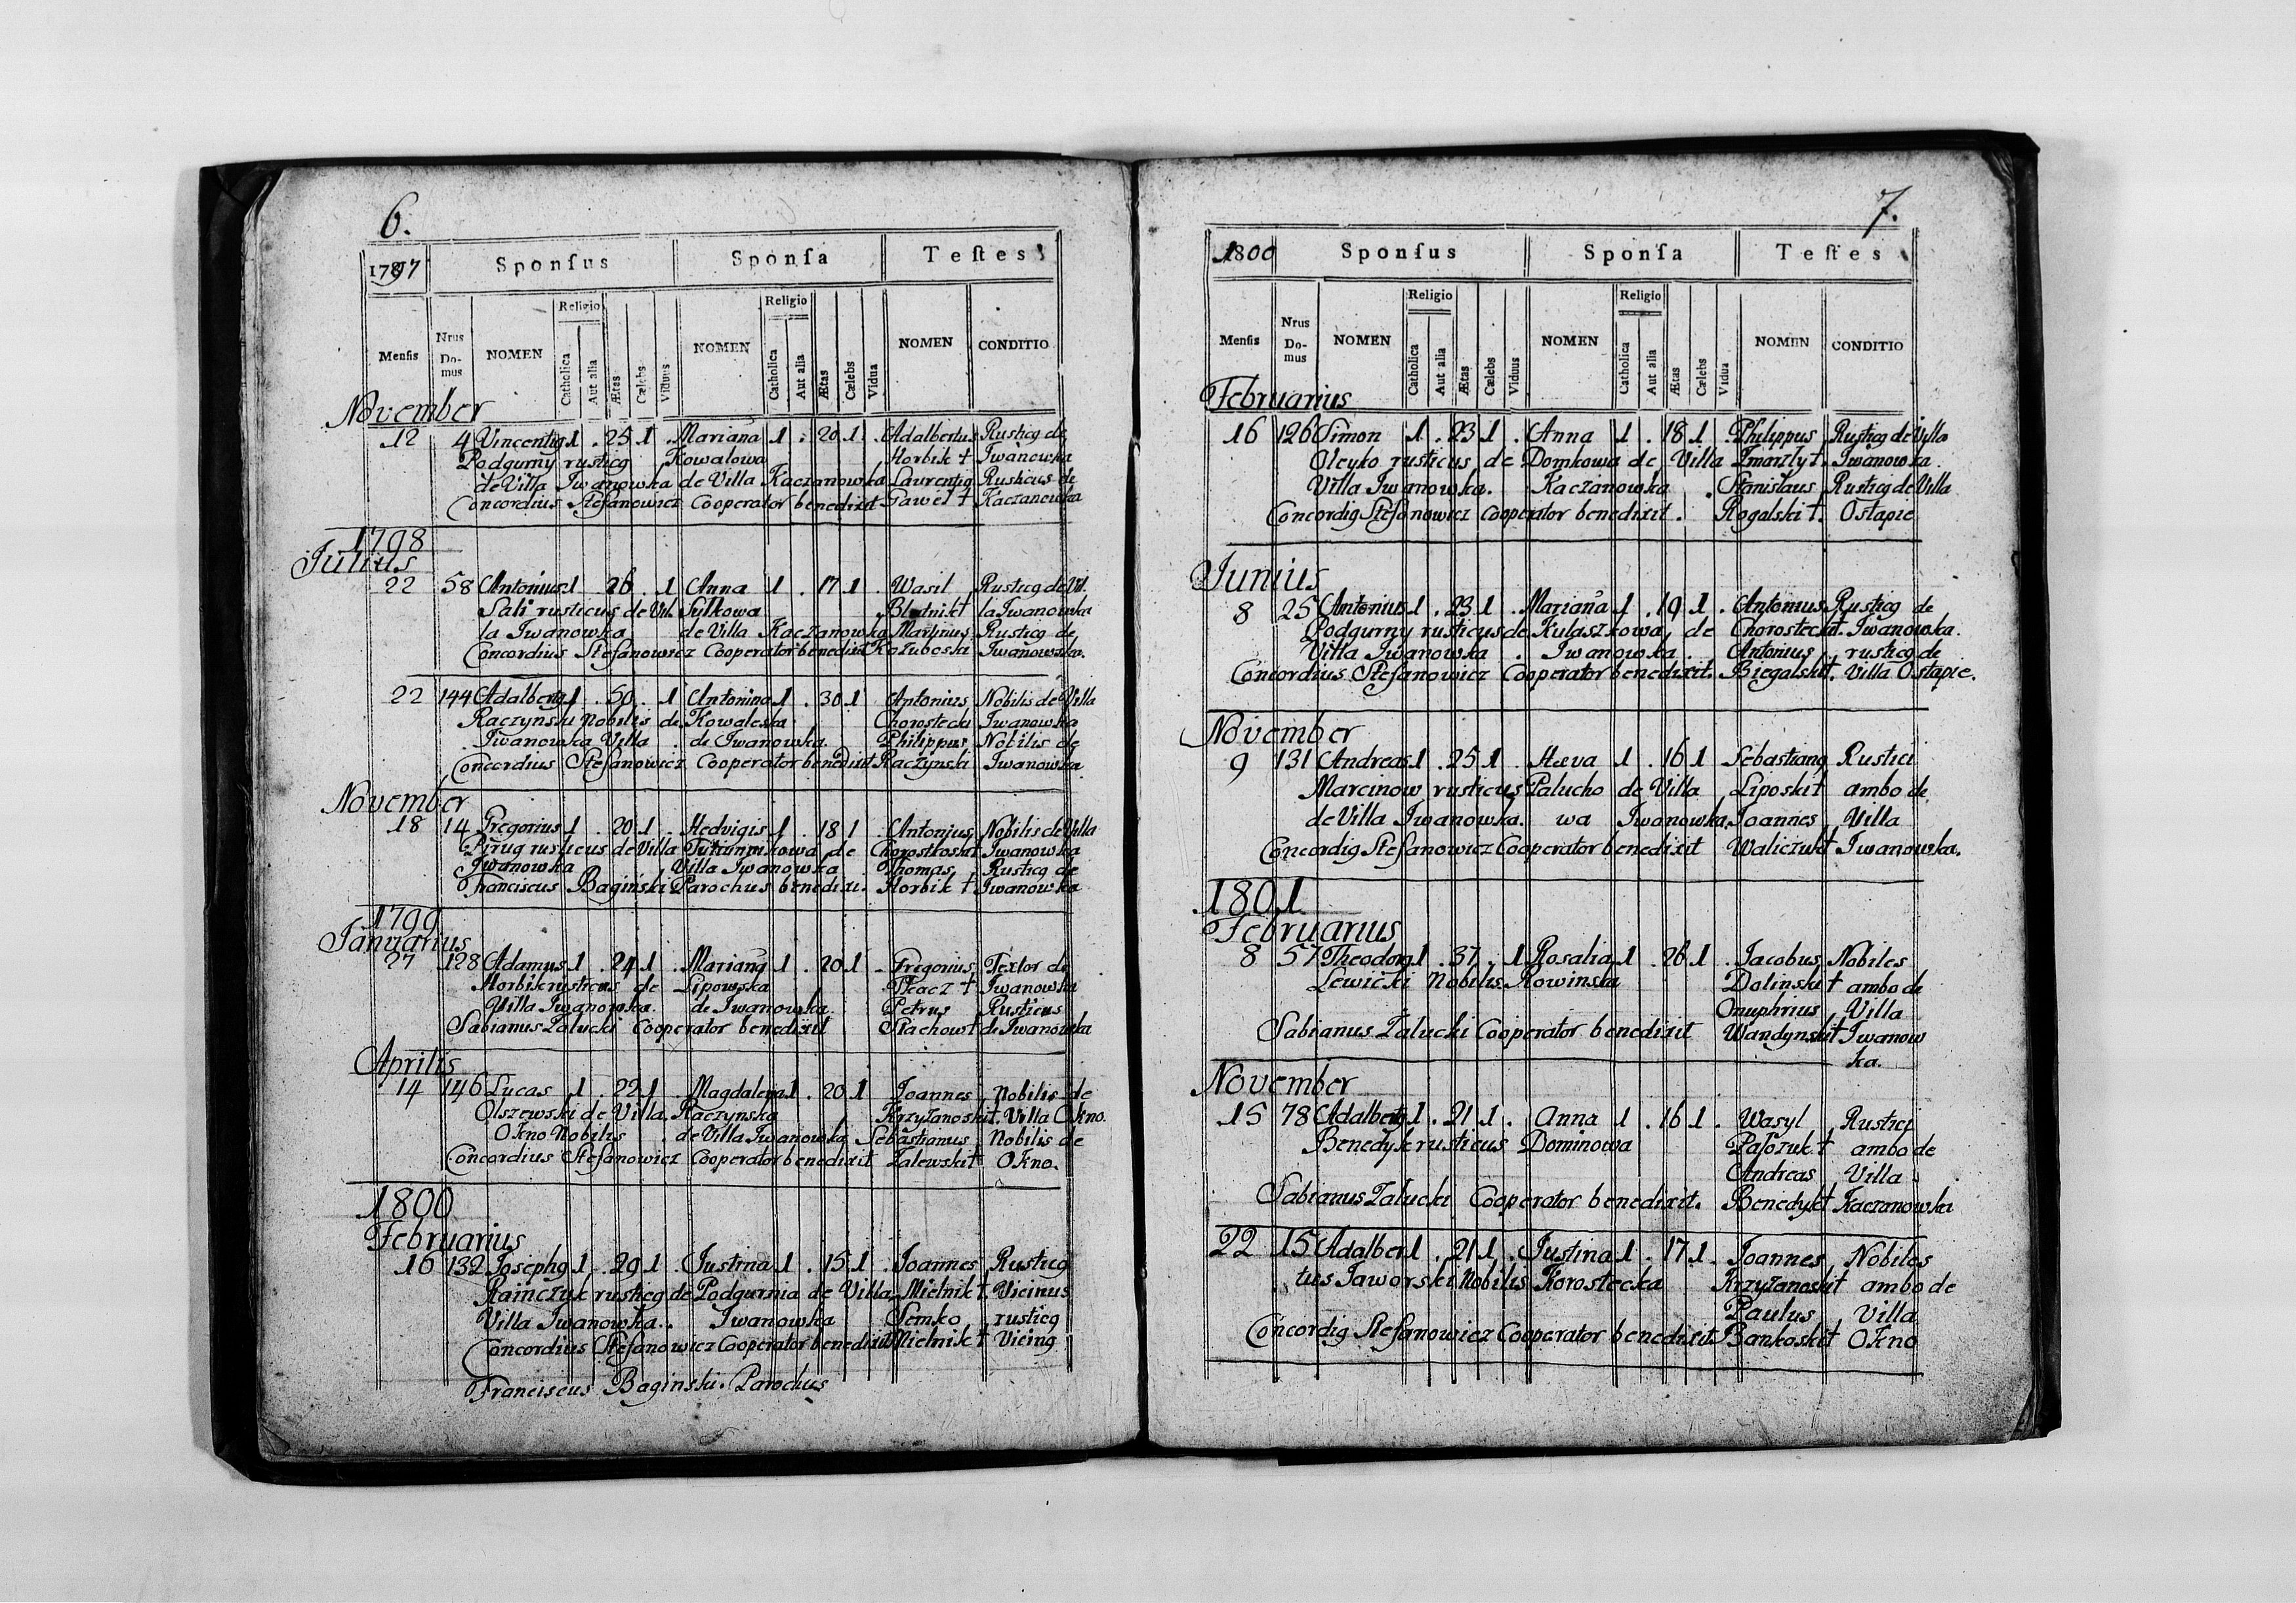 6.
1797 Sponsus Sponsa Testes
Mensis Nrus Do-mus NOMEN Religio Catholica Aut alia Ætas Cælebs Viduus NOMEN Religio Catholica Aut alia Ætas Cælebs Vidua NOMEN CONDITIO
November
12 4 Vincentig 1 . 25 1 . Marianna 1 . 20 1 . Adalbertus Rusticg de
Podgurny rusticg Kowalowa Horbik † Iwanowka
de Villa Iwanowka de Villa Kaczanowka Laurentig Rusticus de
Concordius Stefanowicz Cooperator benedixit Pawel † Kaczanowka
1798
Julius
22 58 Antonius 1 26 . 1 Anna 1 . 17 1 . Wasil Rusticg de Vil.
Sali rusticus de Vil. Sulkowa † la Iwanowka
la Iwanowka de Villa Kaczanowka Martinus Rusticg de
Concordius Stefanowicz Cooperator benedixit Iwanowka.
22 144 Adalbertg 1 . 50 . 1 Antonina 1 . 30 1 Antonius Nobilis de Villa
Raczynski Nobilis de Kowaleska Chorostecki Iwanowka
Iwanowka Villa . de Iwanowka. Philippus Nobilis de
Concordius Stefanowicz Cooperator benedixit Raczynski Iwanowka
November
18 14 Gregorius 1 . 20 1 . Hedvigis 1 . 18 1 . Antonius Nobilis de Villa
Pirug rusticus de Villa de Iwanowka
Iwanowka Villa Iwanowka Thomas Rusticg de
Franciscus Bagiński Parochus benedixi. Horbik † Iwanowka
1799
Januarius
27 128 Adamus 1 . 24 1 . Marianna 1 . 20 1 . Gregorius Textor de
Horbik rusticus de Lipowska Tkacz † Iwanowka
Villa Iwanowka. de Iwanowka. Petrus Rusticus
Sabianus Zalucki Cooperator benedixit Stachow † de Iwanowka
Aprilis
14 146 Lucas 1 . 22 1 Magdalena 1 . 20 1 Joannes Nobilis de
Olszewski de Villa Raczynska Krzyżanoski †. Villa Okno.
Okno Nobilis . de Villa Iwanowka Sebastianus Nobilis de
Concordius Stefanowicz Cooperator benedixit Zalewski † Okno.
1800
Februarius
16 132 Josephg 1 . 29 1 . Justina 1 . 15 1 . Joannes Rusticg
Rainczuk rusticg de Podgurnia de Villa Mielnik †. Vicinus
Villa Iwanowka. Iwanowka Semko rusticg
Concordius Stefanowicz Cooperator benedixit Mielnik † Vicing
Franciscus Baginski. Parochus
7.
1800 Sponsus Sponsa Testes
Mensis Nrus Do-mus NOMEN Religio Catholica Aut alia Ætas Cælebs Viduus NOMEN Religio Catholica Aut alia Ætas Cælebs Vidua NOMEN CONDITIO
Februarius
16 126 Simon 1 . 23 1 . Anna 1 . 18 1 . Philippus Rusticg de Villa
Oleyko rusticus de Domkowa de Villa Zmarzly †. Iwanowka.
Villa Iwanowka. Kaczanowka . Stanislaus Rusticg de Villa
Concordig Stefanowicz Cooperator benedixit. Rogalski †. Ostapie
Junius
8 25 Antonius 1 . 23 1 . Marianna 1 . 19 1 . Antonius Rusticg de
Podgurny rusticus de Kulaszkowa, de Chorostecki †. Iwanowka.
Villa Iwanowka . Iwanowka . Antonius rusticg de
Concordius Stefanowicz Cooperator benedixit. Biegalski †. Villa Ostapie.
November
9 131 Andreas 1 . 25 1 . Hæva 1 . 16 1 Sebastiang Rustici
Marcinow rusticus Palucho de Villa Liposki † ambo de
de Villa Iwanowka. wa Iwanowka. Joannes Villa
Concordig Stefanowicz Cooperator benedixit Waliczuk † Iwanowka.
1801
Februarius
8 57 Theodorg 1 . 37 . 1 Rosalia 1 . 26 1 . Jacobus Nobiles
Lewicki Nobilis Rowinska Dolinski † ambo de
Onuphrius Villa
Sabianus Zalucki Cooperator benedixit Wandynski † Iwanow
ka.
November
15 78 Adalbertg 1 . 21 1 . Anna 1 . 16 1 . Wasyl Rustici
Benedyk rusticus Dominowa † ambo de
Andreas Villa
Sabianus Zalucki Cooperator benedixit. Benedyk † Kaczanowka
22 15 Adalber 1 . 21 1 . Justina 1 . 17 1 . Joannes Nobiles
tus Jaworski Nobilis Korostecka Krzyżanoski † ambo de
Paulus Villa
Concordig Stefanowicz Cooperator benedixit Bankoski † Okno